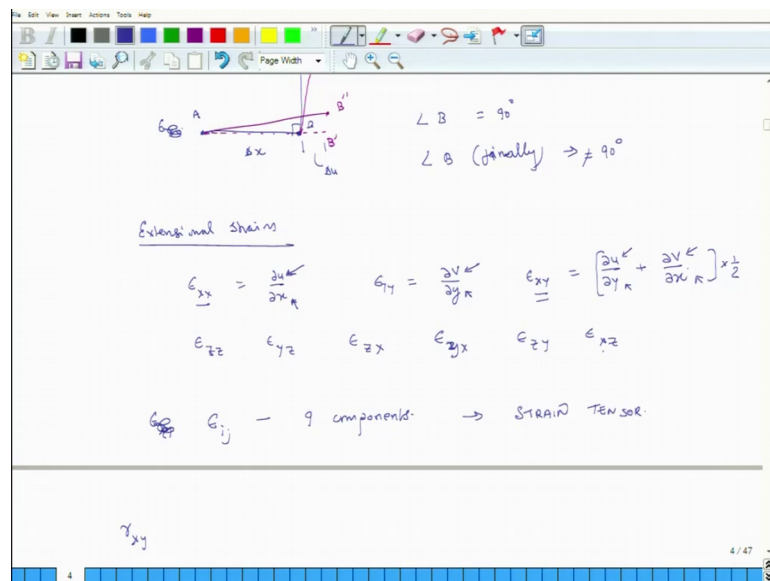 File Edit View Insert Actions Tools Help
B I
Page Width
A B B'' B'
Δx Δu
∠B = 90°
∠B (finally) → ≠ 90°
Extensional Strains
ϵxx = ∂u/∂x ϵyy = ∂v/∂y ϵxy = [∂u/∂y + ∂v/∂x] × 1/2
ϵzz ϵyz ϵzx ϵyx ϵzy ϵxz
ϵij - 9 components. → STRAIN TENSOR.
γxy
4 / 47
4